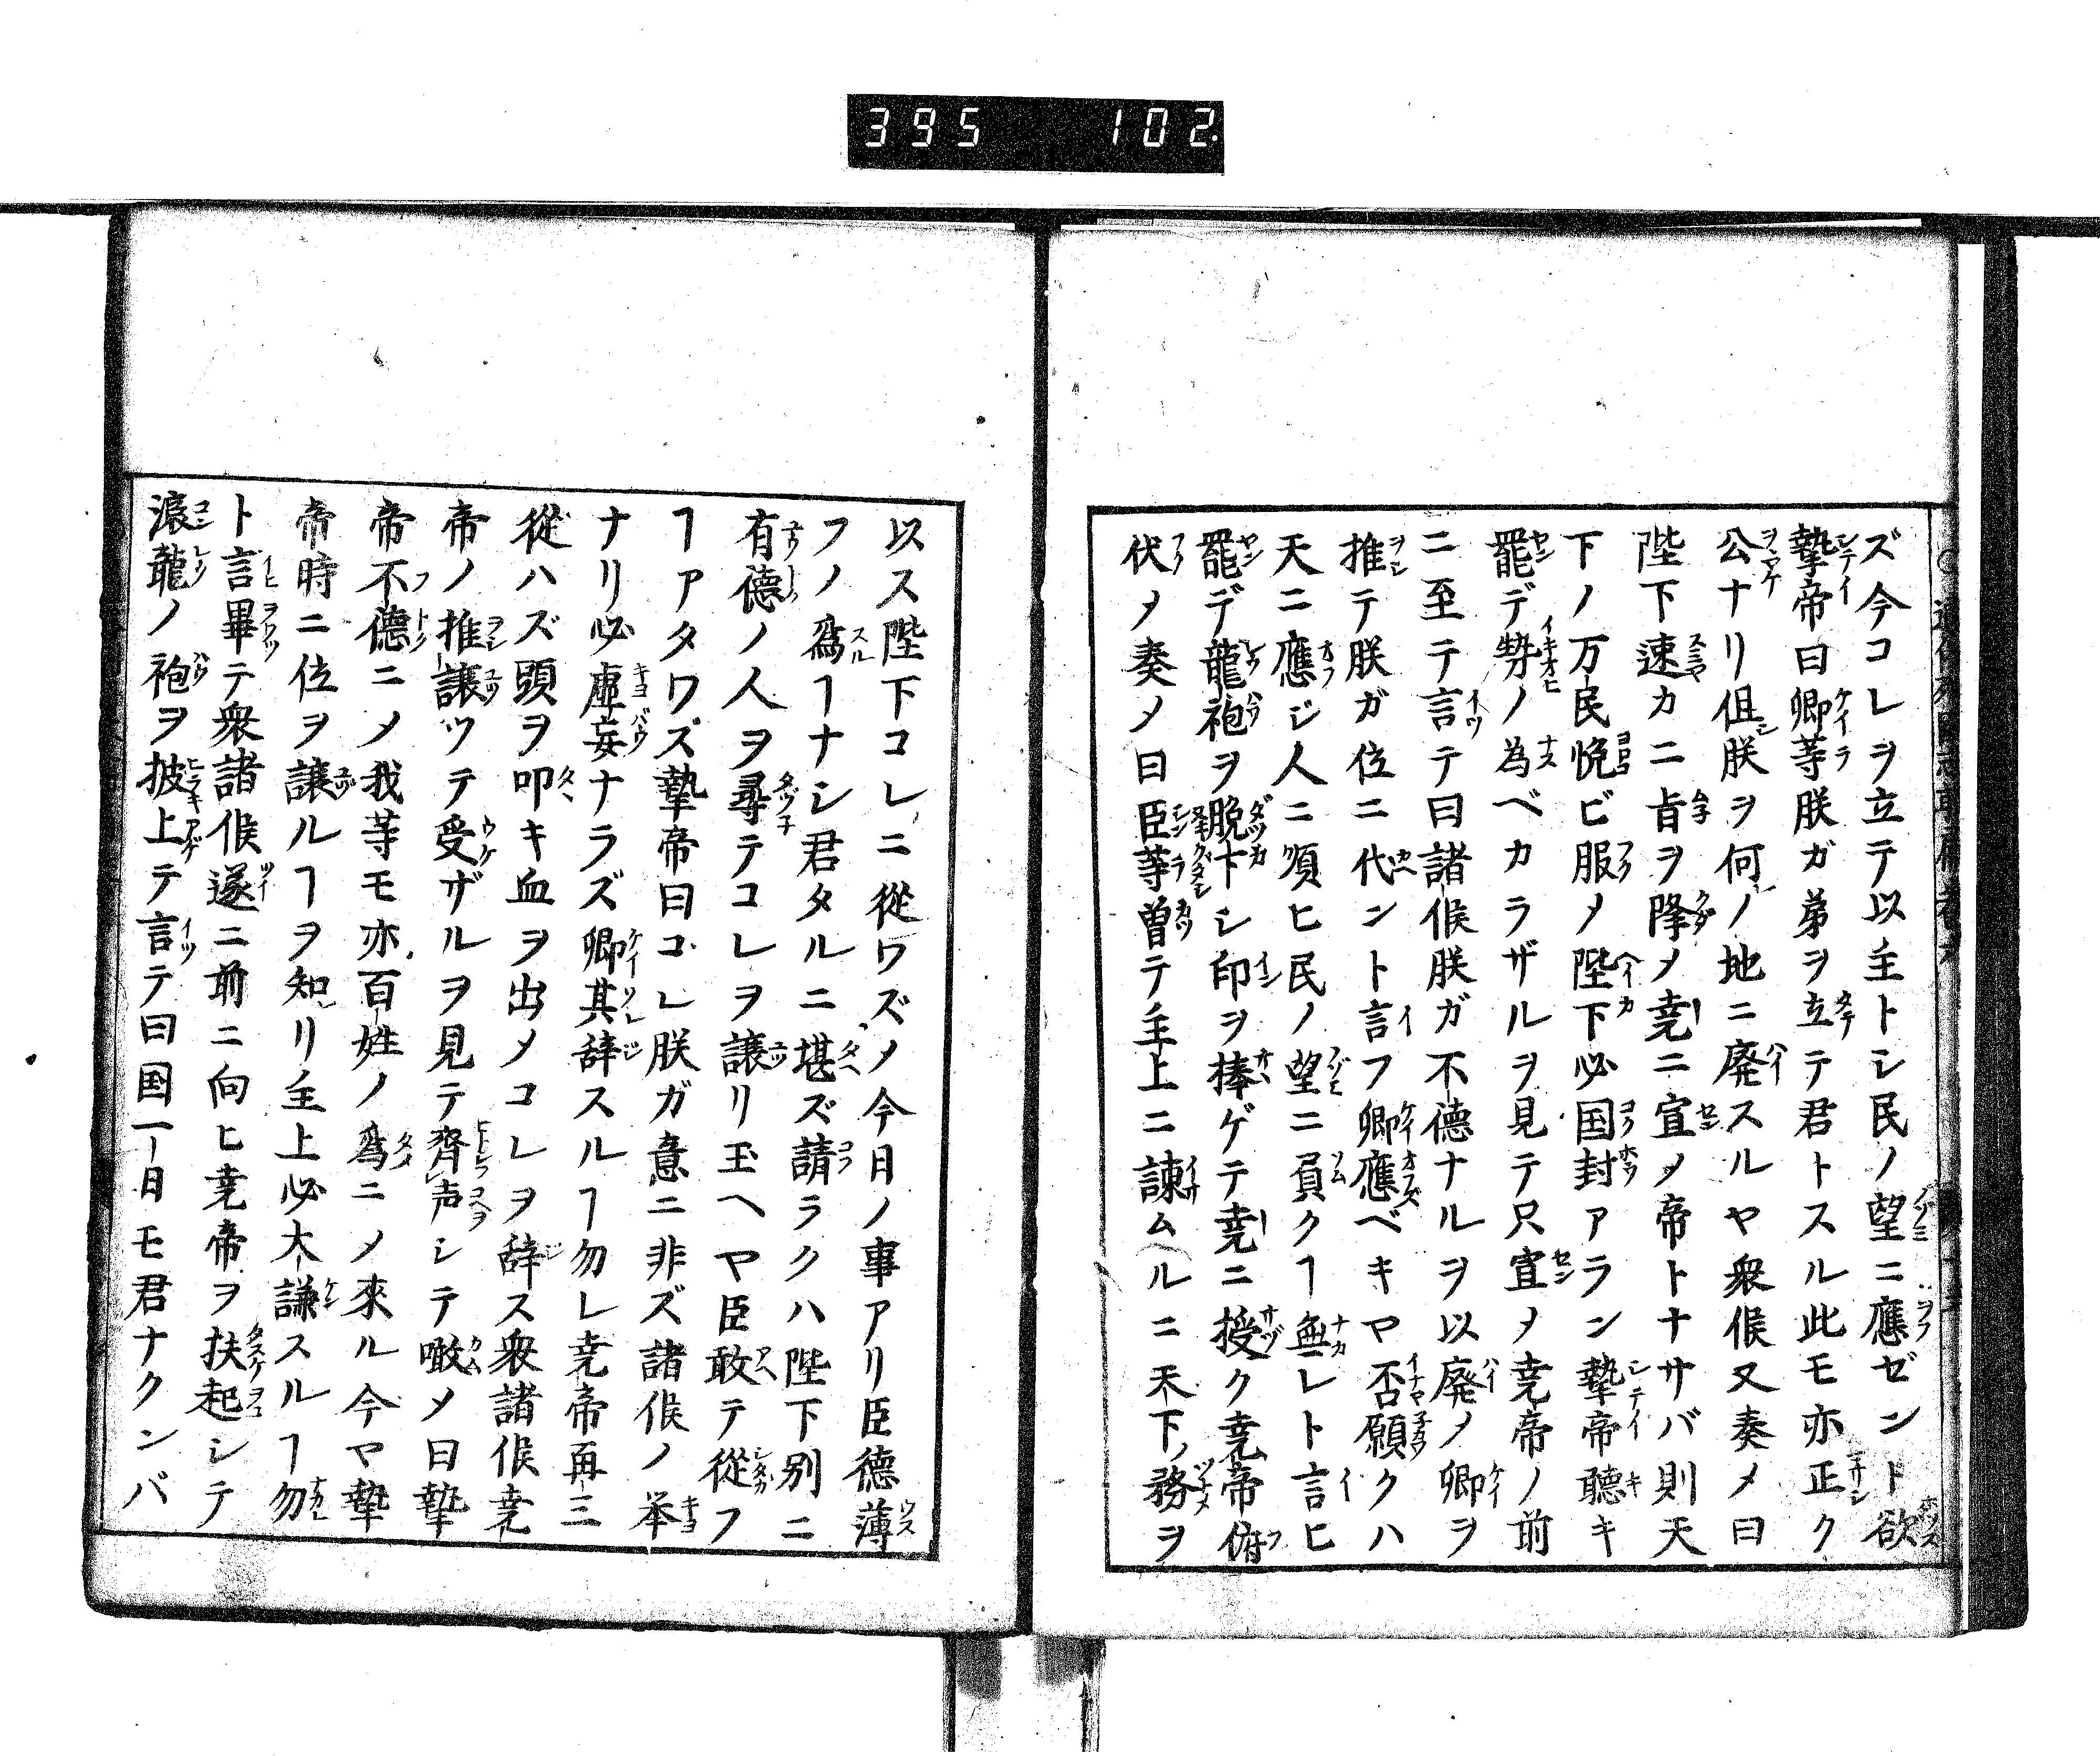 395 102
ズ今コレヲ立テ以主トシ民ノ望ニ應ゼント欲
摯帝曰卿等朕ガ弟ヲ立テ君トスル此モ亦正ク
公ナリ但朕ヲ何ノ地ニ廃スルヤ衆侯又奏メ曰
陛下速カニ旨ヲ降メ尭ニ宣メ帝トナサバ則天
下ノ万民悦ビ服メ陛下必国封アラン摯帝聴キ
罷デ勢ノ為ベカラザルヲ見テ只宣メ尭帝ノ前
ニ至テ言テ曰諸侯朕ガ不德ナルヲ以廃メ卿ヲ
推テ朕ガ位ニ代ント言フ卿應ベキヤ否願クハ
天ニ應ジ人ニ順ヒ民ノ望ニ負クヿ無レト言ヒ
罷デ龍袍ヲ脱下シ印ヲ捧ゲテ尭ニ授ク尭帝俯
伏メ奏メ曰臣等曽テ主上ニ諌ムルニ天下ノ務ヲ
以ス陛下コレニ從ワズメ今日ノ事アリ臣德薄
フノ爲ヿナシ君タルニ堪ズ請ラクハ陛下別ニ
有德ノ人ヲ尋テコレヲ譲リ玉ヘヤ臣敢テ從フ
ヿアタワズ摯帝曰コレ朕ガ意ニ非ズ諸侯ノ挙
ナリ必虚妄ナラズ卿其辞スルヿ勿レ尭帝再三
從ハズ頭ヲ叩キ血ヲ出メコレヲ辞ス衆諸侯尭
帝ノ推譲ツテ受ザルヲ見テ齊声シテ噉メ曰摯
帝不德ニメ我等モ亦百姓ノ爲ニメ來ル今ヤ摯
帝時ニ位ヲ譲ルヿヲ知リ主上必大謙スルヿ勿
ト言畢テ衆諸侯遂ニ前ニ向ヒ尭帝ヲ扶起シテ
滾龍ノ袍ヲ披上テ言テ曰国一日モ君ナクンバ